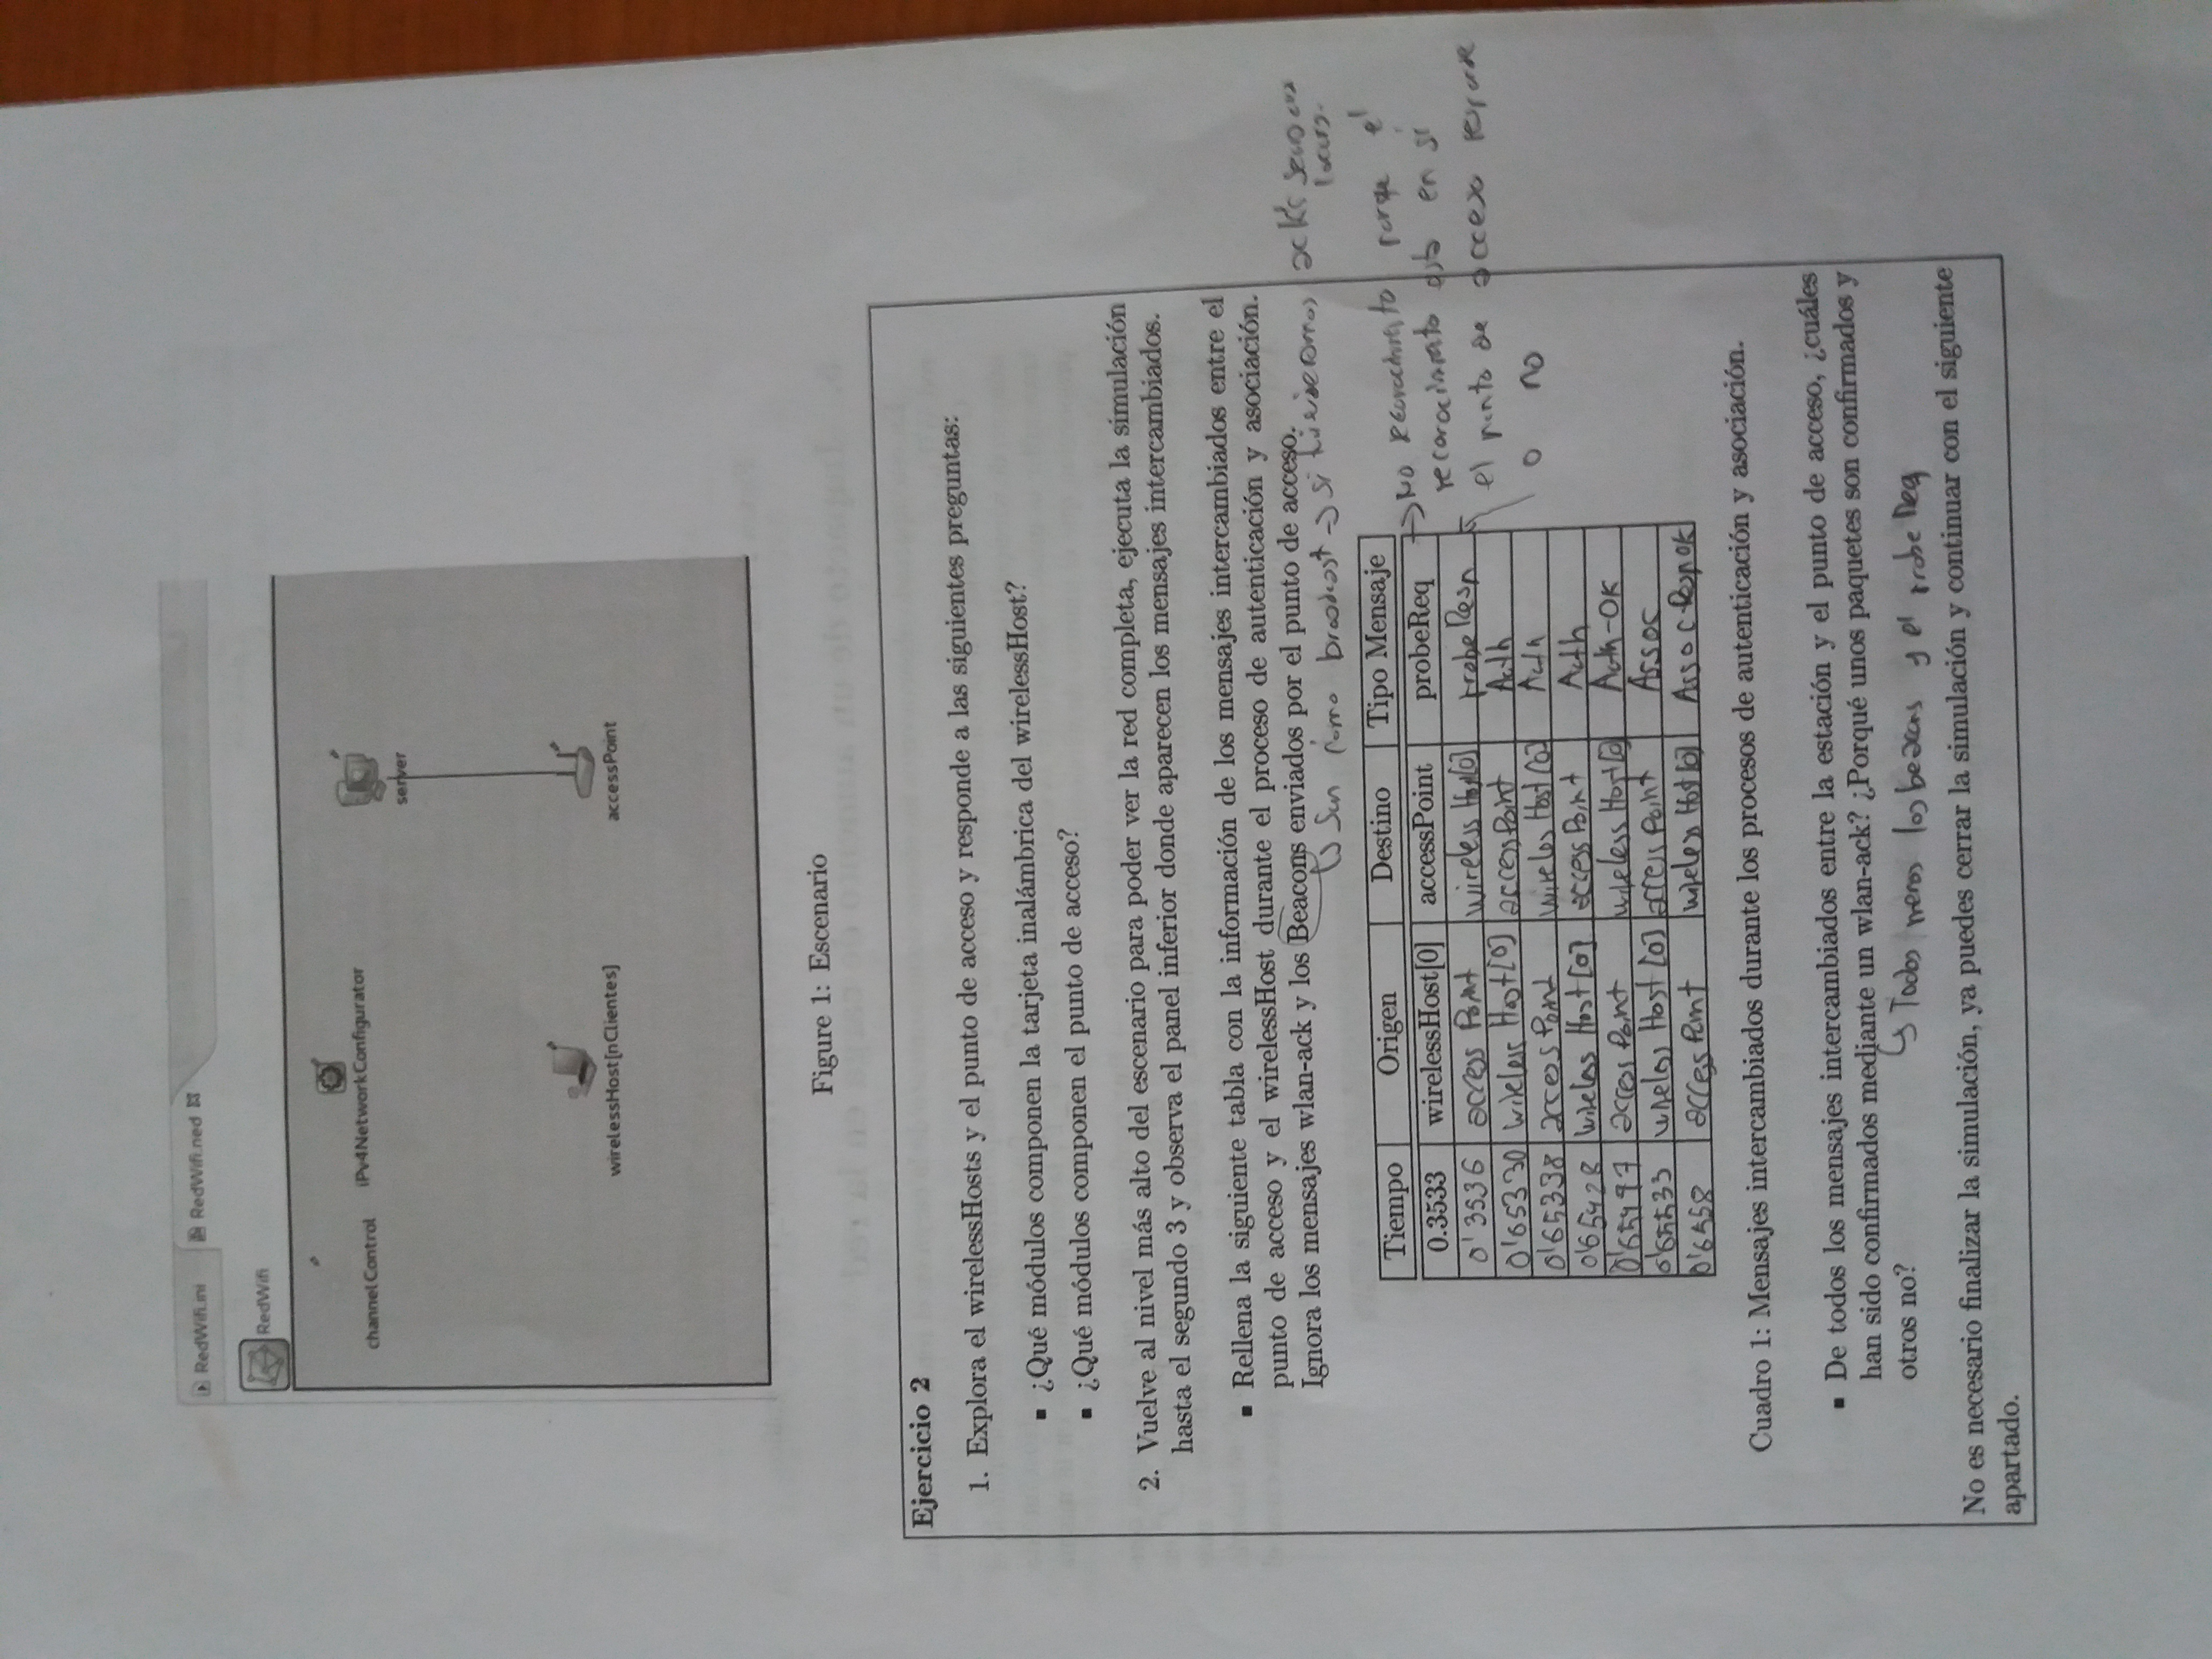 RedWifi.ini RedWifi.ned
RedWifi
channelControl iPv4NetworkConfigurator
server
wirelessHost[nClientes] accessPoint
Figure 1: Escenario
Ejercicio 2
1. Explora el wirelessHosts y el punto de acceso y responde a las siguientes preguntas:
▪ ¿Qué módulos componen la tarjeta inalámbrica del wirelessHost?
▪ ¿Qué módulos componen el punto de acceso?
2. Vuelve al nivel más alto del escenario para poder ver la red completa, ejecuta la simulación
hasta el segundo 3 y observa el panel inferior donde aparecen los mensajes intercambiados.
▪ Rellena la siguiente tabla con la información de los mensajes intercambiados entre el
punto de acceso y el wirelessHost durante el proceso de autenticación y asociación.
Ignora los mensajes wlan-ack y los Beacons enviados por el punto de acceso.
↳ Son como broadcast → si tuvieramos acks
Tiempo Origen Destino Tipo Mensaje
0.3533 wirelessHost[0] accessPoint probeReq
→ No reconocimiento porque el
reconocimiento está en si
el punto de acceso responde
o no
0'3536 access Point wireless Host[0] probeResp
0'65330 wireless Host[0] accessPoint Auth
0'65338 acces Point wireles Host[0] Auth
0'65428 wireless Host[0] accessPoint Auth
0'65497 acces Point wireless Host[0] Auth-OK
0'65533 wireles Host [0] accessPoint Assoc
0'6558 acces Point wireless Host[0] Assoc-Resp OK
Cuadro 1: Mensajes intercambiados durante los procesos de autenticación y asociación.
▪ De todos los mensajes intercambiados entre la estación y el punto de acceso, ¿cuáles
han sido confirmados mediante un wlan-ack? ¿Porqué unos paquetes son confirmados y
otros no?
↳ Todos menos los beacons y el probe Req
No es necesario finalizar la simulación, ya puedes cerrar la simulación y continuar con el siguiente
apartado.